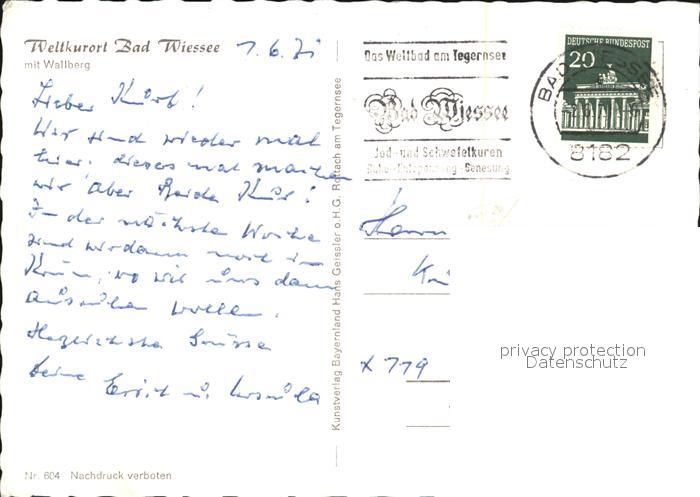 Weltkurort Bad Wiessee
mit Wallberg
1.6.71
Lieber Kurt!
Wir sind wieder mal
hier. dieses mal machen
wir aber Beide Kur!
In der nächste Woche
sind wir dann noch in
Krün, wo wir uns dann
ausruhen wollen.
Herzlichste Grüsse
deine Erich u. Ursula
Nr. 604 Nachdruck verboten
Kunstverlag Bayernland Hans Geissler o.H.G. Rottach am Tegernsee
Das Weltbad am Tegernsee
Bad Wiessee
Jod- und Schwefelkuren
Ruhe-Entspannung-Genesung
DEUTSCHE BUNDESPOST
20
BAD WIESSEE
8182
Herrn
K
x 779
privacy protection
Datenschutz